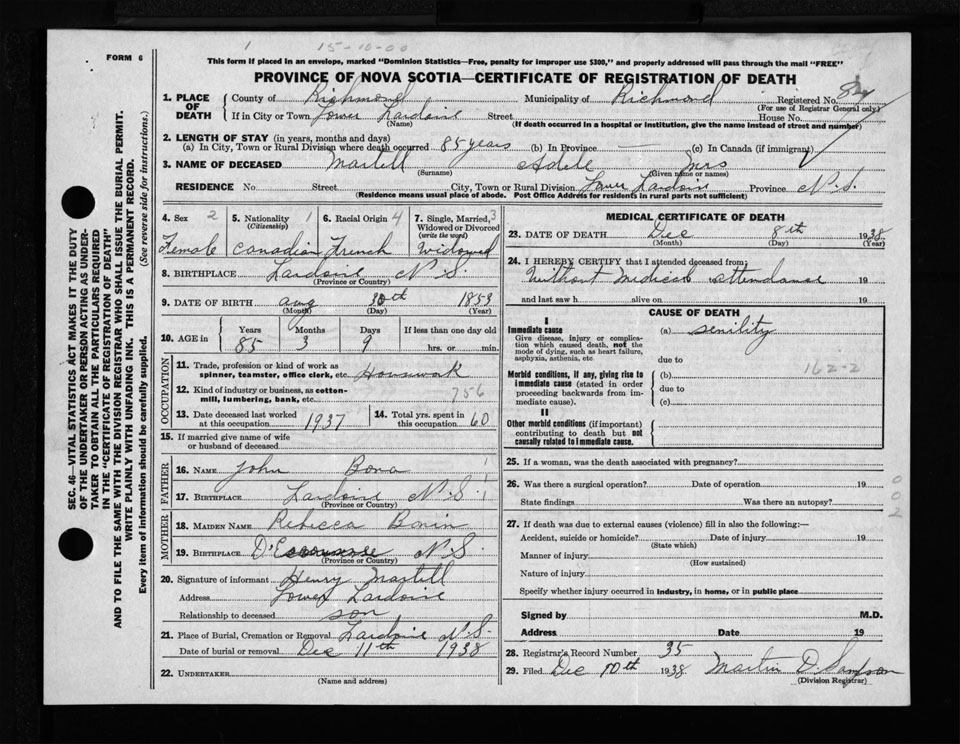 1 15-10-00
FORM 6
This form if placed in an envelope, marked "Dominion Statistics—Free, penalty for improper use $300," and properly addressed will pass through the mail "FREE"
PROVINCE OF NOVA SCOTIA—CERTIFICATE OF REGISTRATION OF DEATH
1. PLACE OF DEATH County of Richmond Municipality of Richmond Registered No.
(For use of Registrar General only.)
If in City or Town Lower Lardoise Street House No.
(Name) (If death occurred in a hospital or institution, give the name instead of street and number)
2. LENGTH OF STAY (in years, months and days)
(a) In City, Town or Rural Division where death occurred 85 years (b) In Province — (c) In Canada (if immigrant)
3. NAME OF DECEASED Martell Adele Mrs
(Surname) (Given name or names)
RESIDENCE No. Street City, Town or Rural Division Lower Lardoise Province N.S.
(Residence means usual place of abode. Post Office Address for residents in rural parts not sufficient)
4. Sex 2 5. Nationality 1 6. Racial Origin 4 7. Single, Married, 3
(Citizenship) Widowed or Divorced
(write the word)
Female Canadian French Widowed
8. BIRTHPLACE Lardoise N.S.
(Province or Country)
9. DATE OF BIRTH Aug 30th 1853
(Month) (Day) (Year)
10. AGE in Years Months Days If less than one day old
85 3 9 hrs. or min.
OCCUPATION
11. Trade, profession or kind of work as
spinner, teamster, office clerk, etc. Housework
12. Kind of industry or business, as cotton-
mill, lumbering, bank, etc. 756
13. Date deceased last worked
at this occupation 1937
14. Total yrs. spent in
this occupation 60
15. If married give name of wife
or husband of deceased
FATHER
16. NAME John Bona 1
17. BIRTHPLACE Lardoise N.S. 1
(Province or Country)
MOTHER
18. MAIDEN NAME Rebecca Bonin
19. BIRTHPLACE N.S.
(Province or Country)
20. Signature of informant Henry Martell
Address Lower Lardoise
Relationship to deceased son
21. Place of Burial, Cremation or Removal Lardoise N.S.
Date of burial or removal Dec 11th 1938
22. UNDERTAKER
(Name and Address)
MEDICAL CERTIFICATE OF DEATH
23. DATE OF DEATH Dec 8th 1938
(Month) (Day) (Year)
24. I HEREBY CERTIFY that I attended deceased from:
Without Medical attendance 19
and last saw h alive on 19
CAUSE OF DEATH
I
Immediate cause (a) senility
Give disease, injury or complica-
tion which caused death, not the
mode of dying, such as heart failure,
asphyxia, asthenia, etc.
due to
162-2
Morbid conditions, if any, giving rise to
immediate cause (stated in order
proceeding backwards from im-
mediate cause).
(b)
due to
(c)
II
Other morbid conditions (if important)
contributing to death but not
causally related to immediate cause.
25. If a woman, was the death associated with pregnancy?
26. Was there a surgical operation? Date of operation 19
State findings Was there an autopsy?
002
27. If death was due to external causes (violence) fill in also the following:—
Accident, suicide or homicide? Date of injury 19
(State which)
Manner of injury
(How sustained)
Nature of injury
Specify whether injury occurred in industry, in home, or in public place
Signed by M.D.
Address Date 19
28. Registrar's Record Number 35
29. Filed Dec 10th 1938 Martin D. Sampson
(Division Registrar)
SEC. 46—VITAL STATISTICS ACT MAKES IT THE DUTY
OF THE UNDERTAKER OR PERSON ACTING AS UNDER-
TAKER TO OBTAIN ALL THE PARTICULARS REQUIRED
IN THE "CERTIFICATE OF REGISTRATION OF DEATH"
AND TO FILE THE SAME WITH THE DIVISION REGISTRAR WHO SHALL ISSUE THE BURIAL PERMIT.
WRITE PLAINLY WITH UNFADING INK. THIS IS A PERMANENT RECORD.
Every item of information should be carefully supplied. (See reverse side for instructions.)